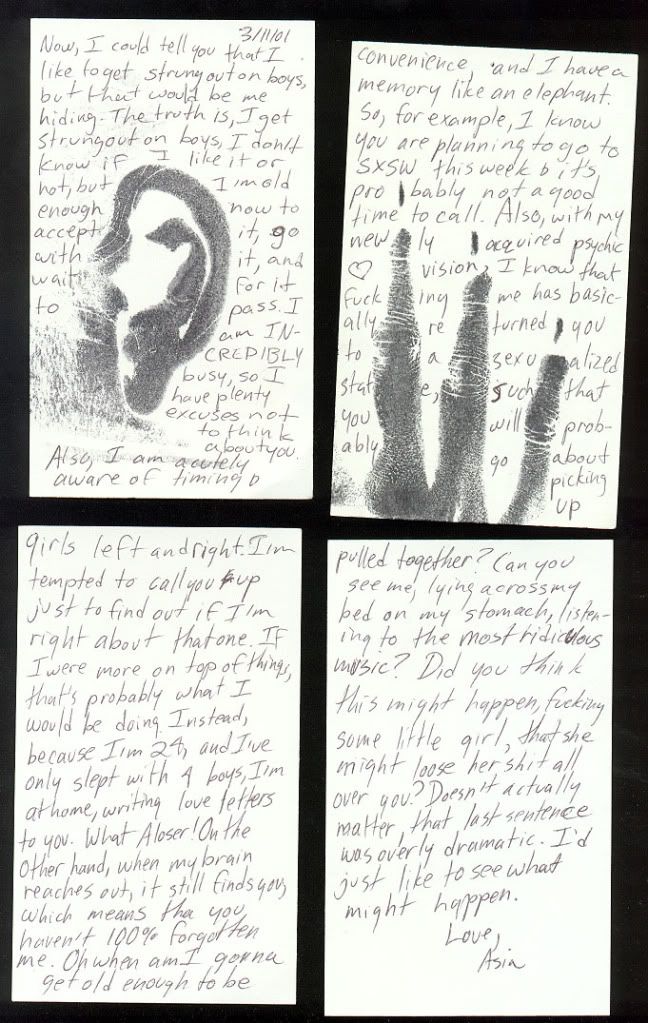 3/11/01
Now, I could tell you that I
like to get strung out on boys,
but that would be me
hiding. The truth is, I get
strung out on boys, I don't
know if I like it or
not, but I'm old
enough now to
accept it, go
with it, and
wait for it
to pass. I
am IN-
CREDIBLY
busy, so I
have plenty
excuses not
to think
about you.
Also, I am acutely
aware of timing &
convenience, and I have a
memory like an elephant.
So, for example, I know
you are planning to go to
SXSW this week & it's
pro bably not a good
time to call. Also, with my
new ly acquired psychic
♡ vision, I know that
fuck ing me has basic-
ally re turned you
to a sexu alized
stat e, such that
you will prob-
ably go about
picking
up
girls left and right. I'm
tempted to call you up
just to find out if I'm
right about that one. If
I were more on top of things,
that's probably what I
would be doing. Instead,
because I'm 24, and I've
only slept with 4 boys, I'm
at home, writing love letters
to you. What A loser! On the
other hand, when my brain
reaches out, it still finds you,
which means tha you
haven't 100% forgotten
me. Oh when am I gonna
get old enough to be
pulled together? Can you
see me, lying across my
bed on my stomach, listen-
ing to the most ridiculous
music? Did you think
this might happen, fucking
some little girl, that she
might loose her shit all
over you? Doesn't actually
matter, that last sentence
was overly dramatic. I'd
just like to see what
might happen.
Love,
Asia